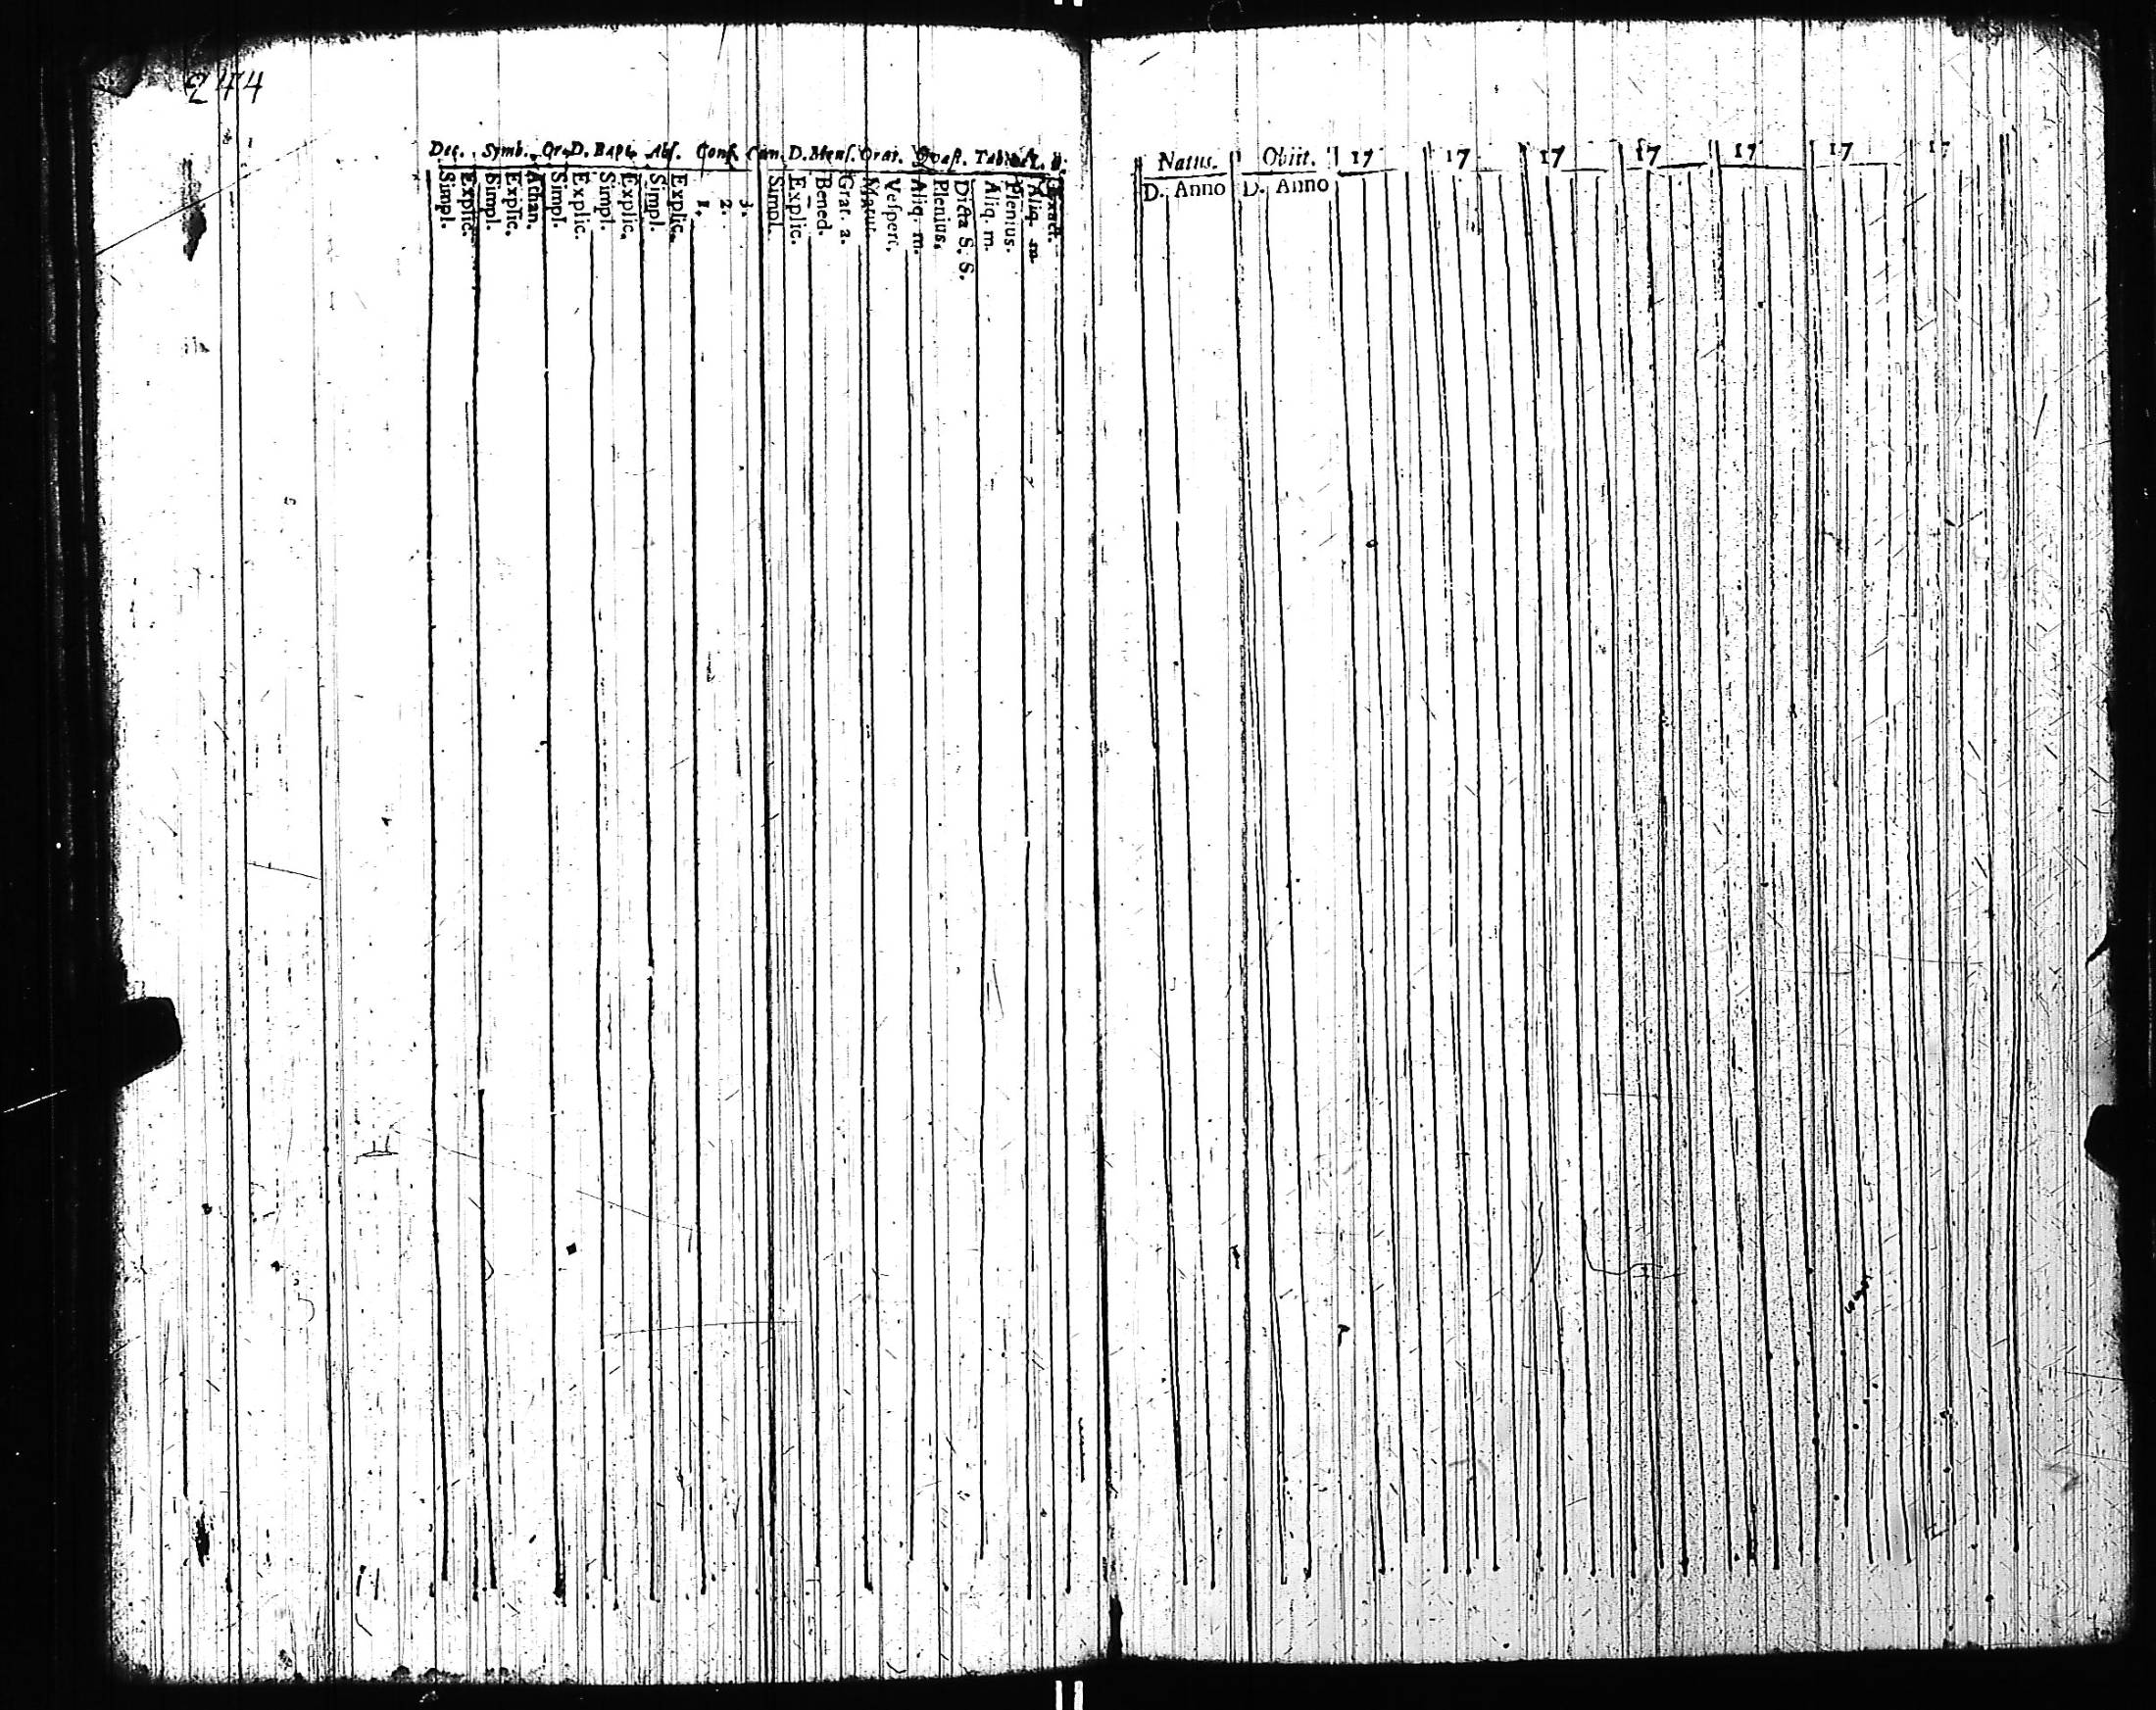 244
Dec. Symb. Or. D. Bapt. Abs. Conf. Cœn. D. Mens. Orat. Quæst. Tab.
Simpl. Explic. Simpl. Explic. Athan. Simpl. Explic. Simpl. Explic. Simpl. Explic. 1. 2. 3. Simpl. Explic. Bened. Grat. a. Matut. Veſpert. Aliq. m. Plenius. Dicta S. S. Aliq. m. Plenius. Aliq. m.
Natus. Obiit. 17 17 17 17 17 17 17
D. Anno D. Anno